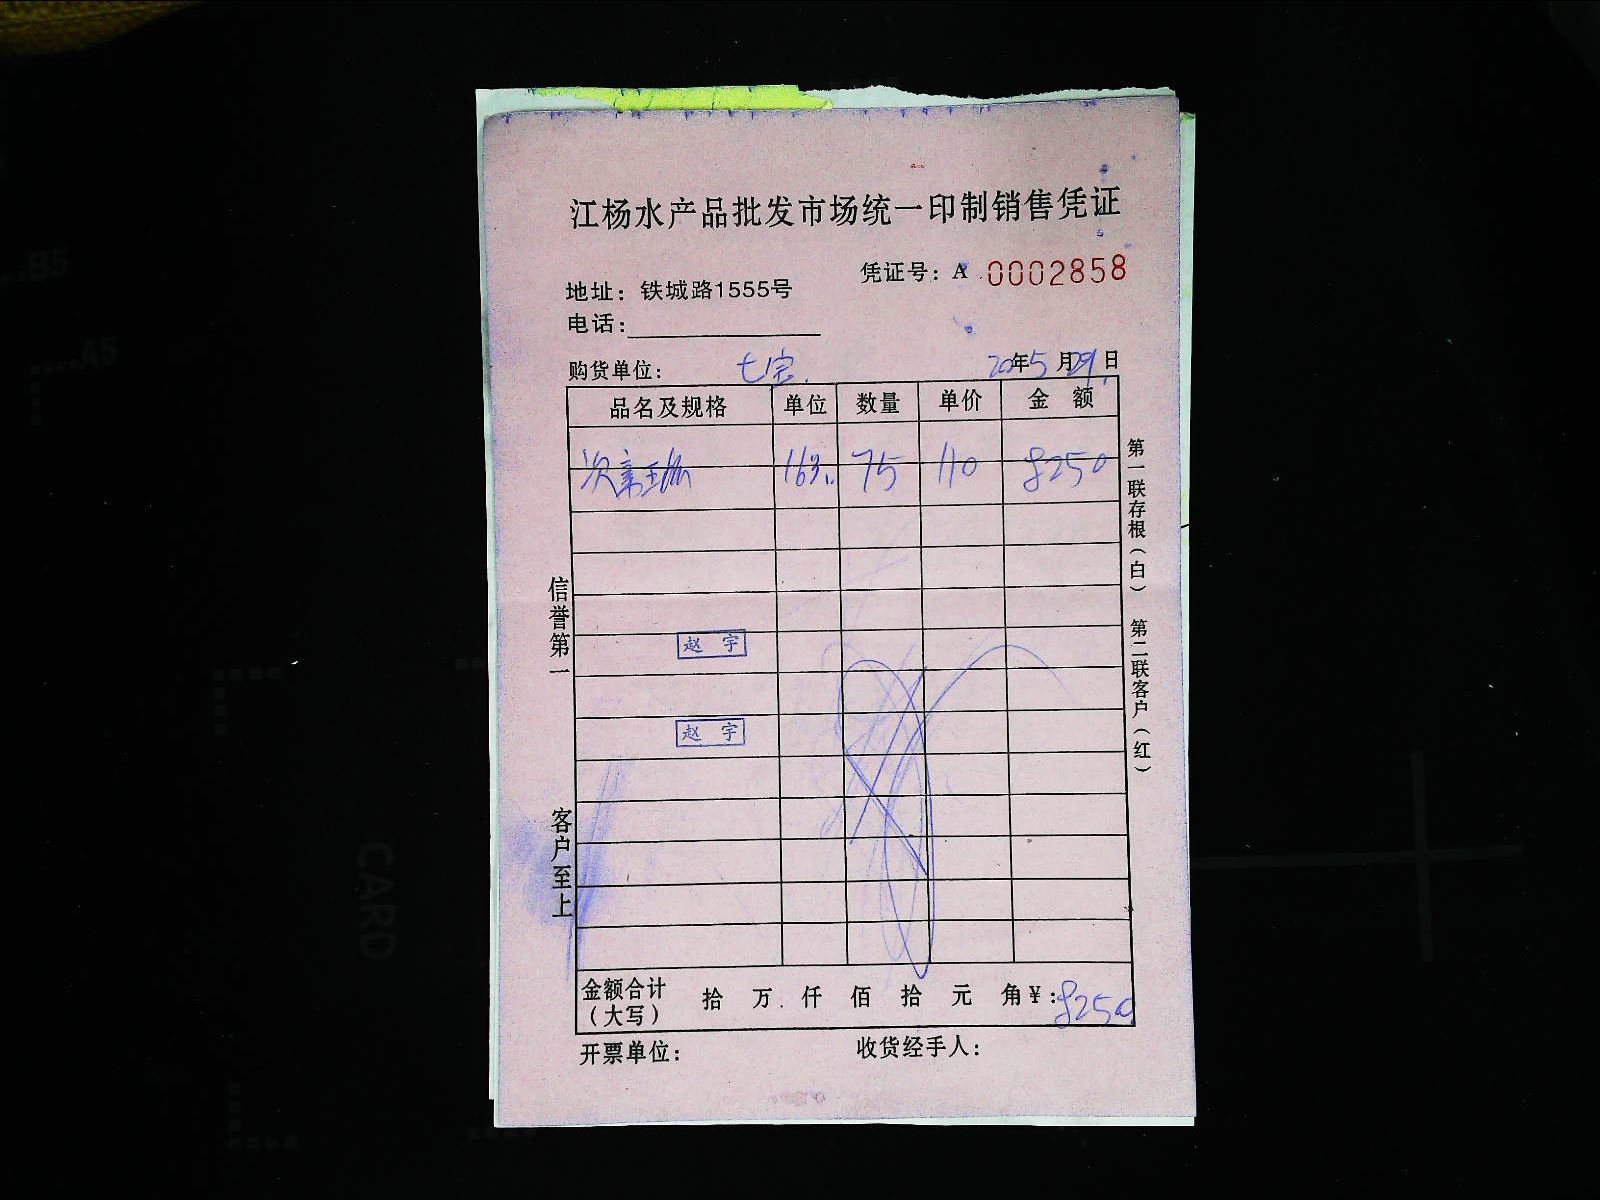 江杨水产品批发市场统一印制销售凭证
凭证号：A 0002858
地址：铁城路1555号
电话：
购货单位：七宝 20年5月29日
品名及规格 单位 数量 单价 金额
75 110 8250
赵宇
赵宇
金额合计（大写） 拾 万 仟 佰 拾 元 角¥：8250
开票单位： 收货经手人：
信誉第一
客户至上
第一联存根（白）
第二联客户（红）
B5
A5
CARD